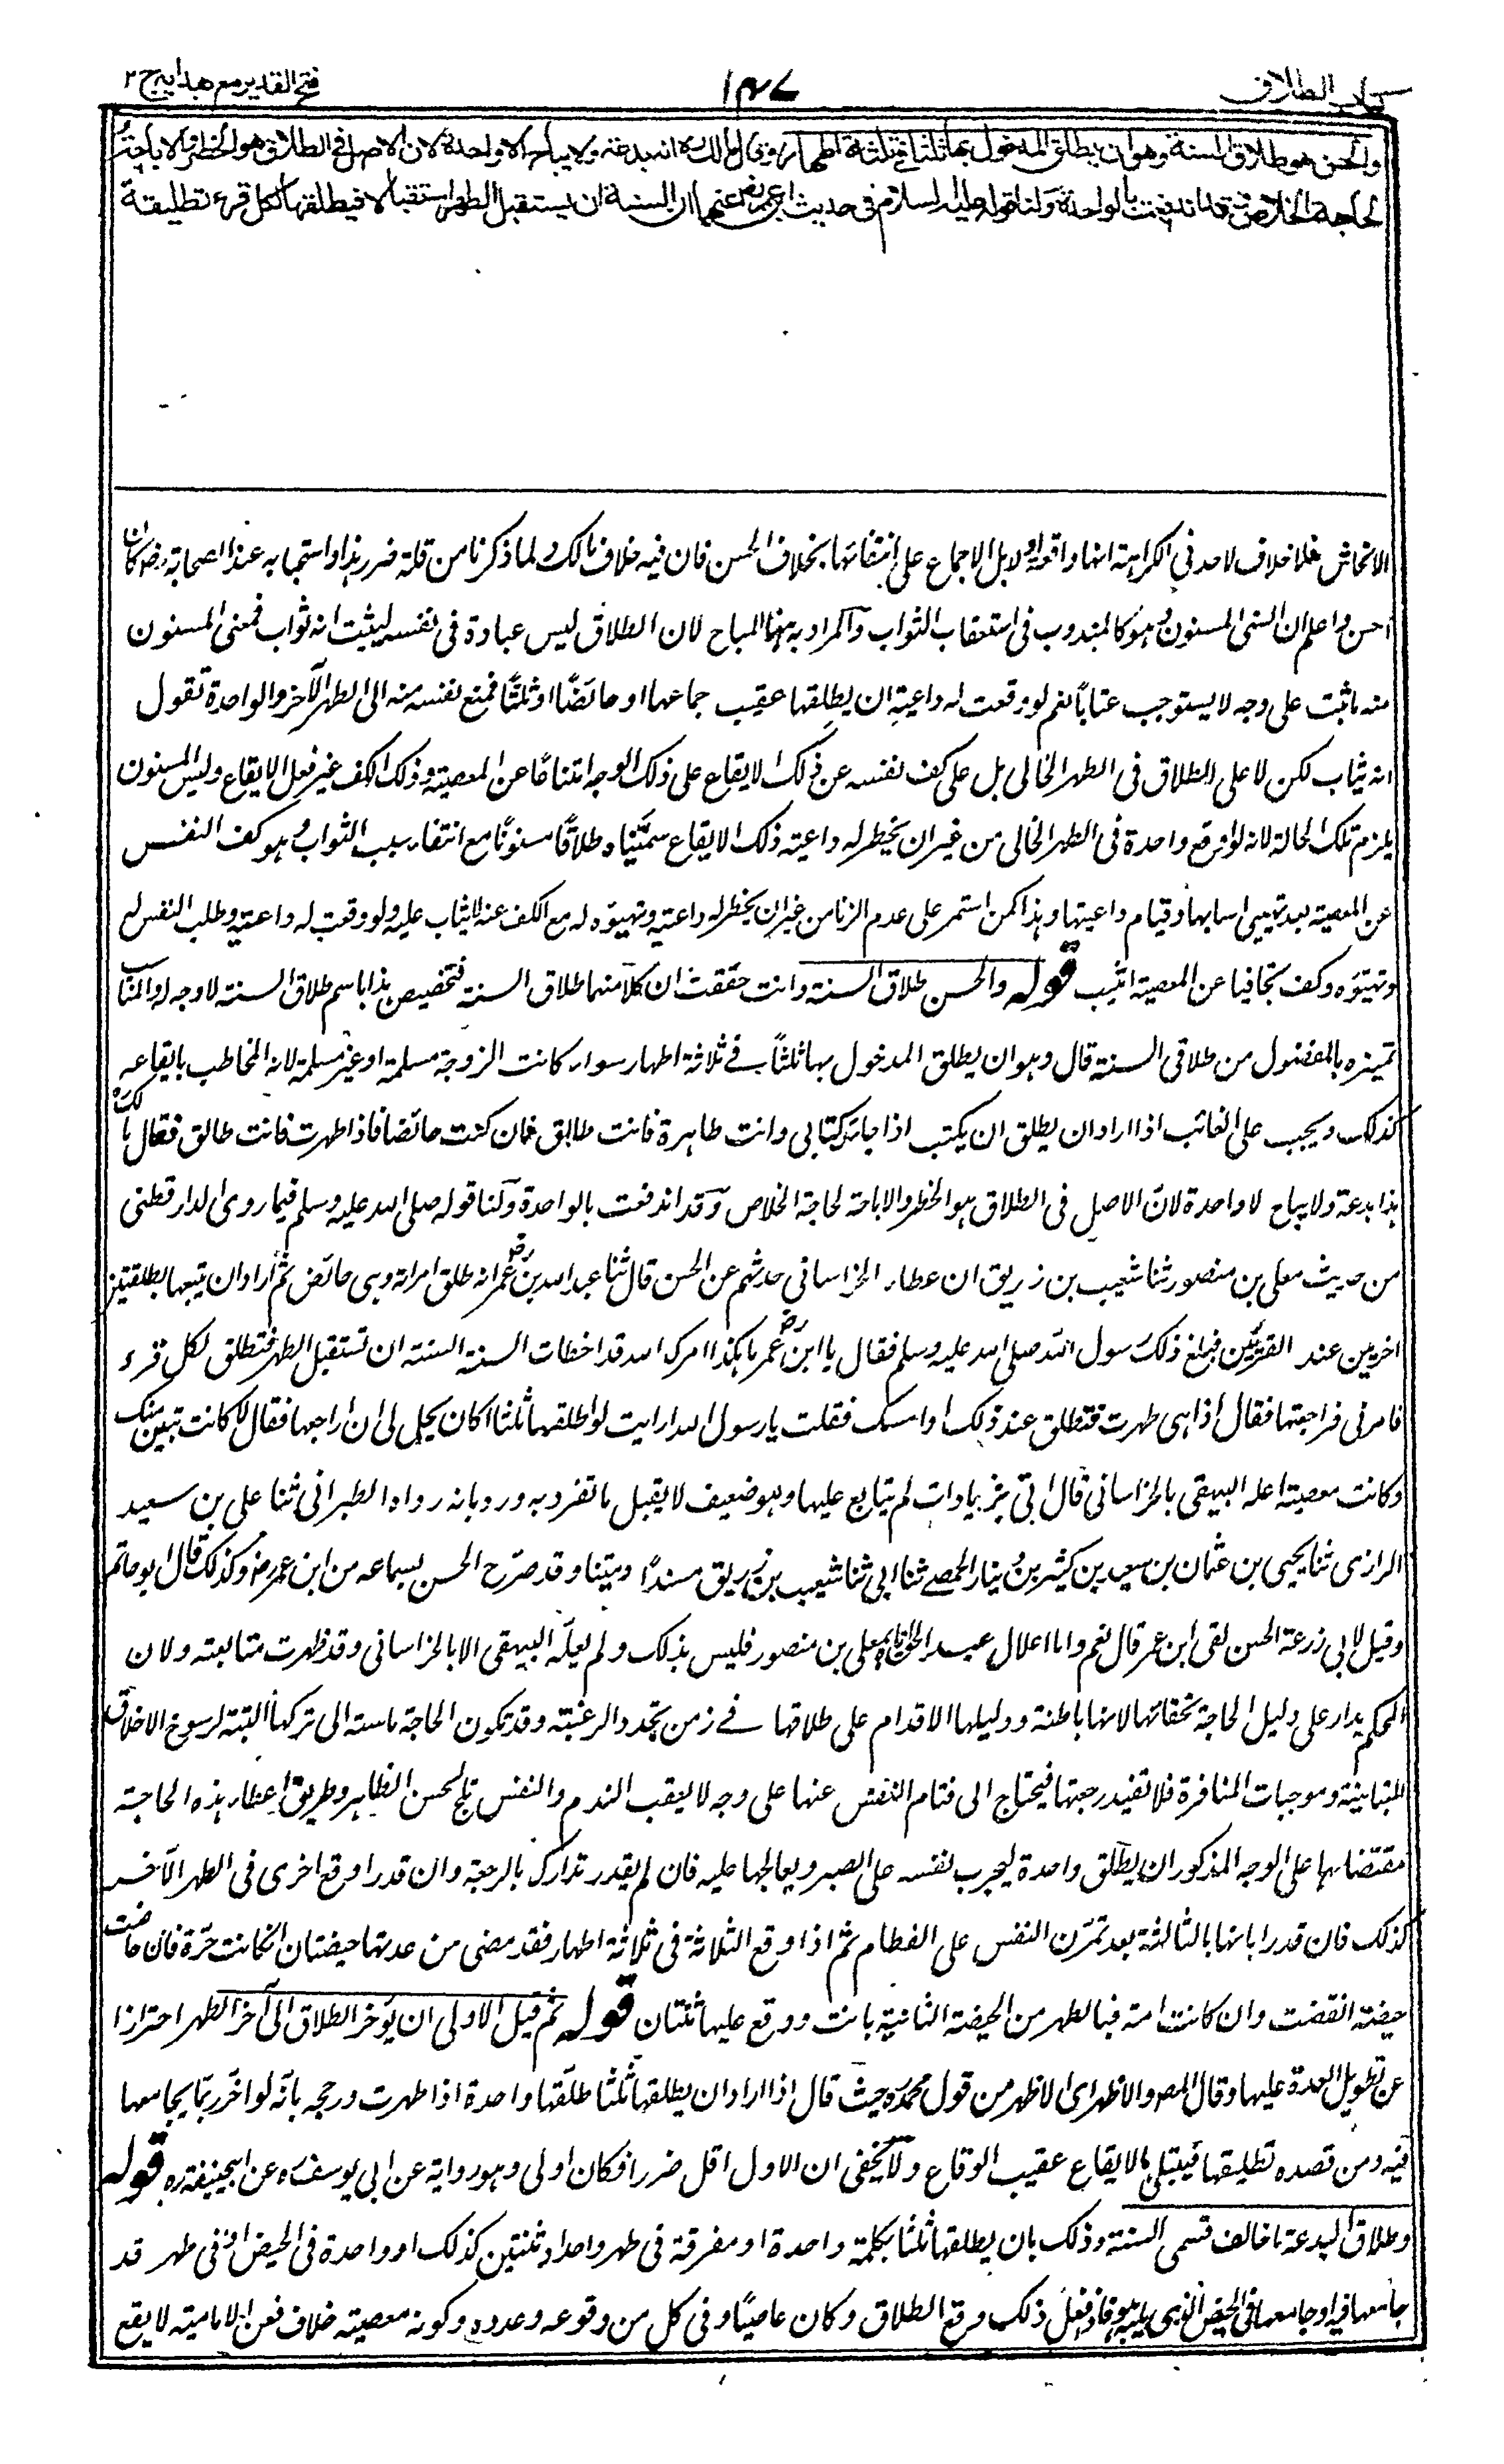 كتاب الطلاق
١٤٧
فتح القدير مع هدايه ج ٢
والحسن هو طلاق السنة وهو ان يطلق المدخول بها ثلثا في ثلثة اطهار وقال مالك ره انه بدعة ولا يباح الا واحدة لان الاصل في الطلاق هو الحظر والاباحة
لحاجة الخلاص وقد اندفعت بالواحدة ولنا قوله عليه السلام في حديث ابن عمر رض عنهما ان السنة ان يستقبل الطهر استقبالا فيطلقها لكل قرء تطليقة
الافحاش فلا خلاف لاحد في الكراهة انها واقعة اولا بل الاجماع على انتفائها بخلاف الحسن فان فيه خلاف مالك ولما ذكرنا من قلة ضرر هذا واستحبابه عند الصحابة رض كان
احسن واعلم ان السنى المسنون وهو كالمندوب في استعقاب الثواب والمراد به هنا المباح لان الطلاق ليس عبادة في نفسه ليثبت انه ثواب فمعنى المسنون
منه ما ثبت على وجه لا يستوجب عتابا نعم لو وقعت له داعية ان يطلقها عقيب جماعها او حائضا او ثلثا فمنع نفسه منه الى الطهر الآخر والواحدة تقول
انه يثاب لكن لا على الطلاق في الطهر الخالى بل على كف نفسه عن ذلك الايقاع على ذلك الوجه امتناعا عن المعصية وذلك الكف غير فعل الايقاع وليس المسنون
يلزم تلك الحالة لانه لو اوقع واحدة في الطهر الخالى من غير ان يخطر له داعية ذلك الايقاع سميناه طلاقا مسنونا مع انتفاء سبب الثواب وهو كف النفس
عن المعصية بعد تهيى اسبابها وقيام داعيتها وهذا كمن استمر على عدم الزنا من غير ان يخطر له داعية وتهيؤه له مع الكف عنه لا يثاب عليه ولو وقعت له داعية وطلب النفس له
وتهيؤه وكف تجافيا عن المعصية اثيب قوله والحسن طلاق السنة وانت حققت ان كلا منهما طلاق السنة فتخصيص هذا باسم طلاق السنة لا وجه له والمناسب
تميزه بالمفضول من طلاقى السنة قال وهو ان يطلق المدخول بها ثلثا في ثلاثة اطهار سواء كانت الزوجة مسلمة او غير مسلمة لانه المخاطب بايقاعه
كذلك ويجب على الغائب اذا اراد ان يطلق ان يكتب اذا جاءك كتابى وانت طاهرة فانت طالق فان كنت حائضا فاذا طهرت فانت طالق فقال مالك ره
هذا بدعة ولا يباح الا واحدة لان الاصل في الطلاق هو الحظر والاباحة لحاجة الخلاص وقد اندفعت بالواحدة ولنا قوله صلى الله عليه وسلم فيما روى الدارقطنى
من حديث معلى بن منصور ثنا شعيب بن زريق ان عطاء الخراسانى حدثهم عن الحسن قال ثنا عبد الله بن عمر رض انه طلق امراته وهى حائض ثم اراد ان يتبعها بطلقتين
اخريين عند القرئين فبلغ ذلك رسول الله صلى الله عليه وسلم فقال يا ابن عمر رض ما هكذا امرك الله قد اخطات السنة السنة ان تستقبل الطهر فتطلق لكل قرء
فامرنى فراجعتها فقال اذا هى طهرت فتطلق عند ذلك او امسك فقلت يا رسول الله ارايت لو اطلقها ثلثا اكان يحل لى ان اراجعها فقال لا كانت تبين منك
وكانت معصية اعله البيهقى بالخراسانى قال اتى بزيادات لم يتابع عليها وهو ضعيف لا يقبل ما تفرد به ورد بانه رواه الطبرانى ثنا على بن سعيد
الرازى ثنا يحيى بن عثمان بن سعيد بن كثير بن دينار الحمصى ثنا ابى ثنا شعيب بن زريق مسندا ومتنا وقد صرح الحسن بسماعه من ابن عمر رض وكذلك قال ابو حاتم
وقيل لابى زرعة الحسن لقى ابن عمر قال نعم واما اعلال عبد الحق اياه بمعلى بن منصور فليس بذلك ولم يعله البيهقى الا بالخراسانى وقد ظهرت متابعته ولان
الحكم يدار على دليل الحاجة لخفائها لانها باطنة ودليلها الاقدام على طلاقها في زمن تجدد الرغبة وقد تكون الحاجة ماسة الى تركها البتة لرسوخ الاخلاق
المتباينة وموجبات المنافرة فلا تفيد رجعتها فيحتاج الى فتام النفس عنها على وجه لا يعقب الندم والنفس تلح لحسن الظاهر وطريق اعطاء هذه الحاجة
مقتضاها على الوجه المذكور ان يطلق واحدة ليجرب نفسه على الصبر ويعالجها عليه فان لم يقدر تدارك بالرجعة وان قدر اوقع اخرى في الطهر الآخر
كذلك فان قدر ابانها بالثالثة بعد تمرن النفس على الفطام ثم اذا اوقع الثلاثة في ثلاثة اطهار فقد مضى من عدتها حيضتان ان كانت حرة فان حاضت
حيضة انقضت وان كانت امة فبالطهر من الحيضة الثانية بانت ووقع عليها ثنتان قوله ثم قيل الاولى ان يؤخر الطلاق الى آخر الطهر احترازا
عن تطويل العدة عليها وقال المصر والاظهر اى الاظهر من قول محمد ره حيث قال اذا اراد ان يطلقها ثلثا طلقها واحدة اذا طهرت ورجحه بانه لو اخر ربما يجامعها
فيه ومن قصده تطليقها فيبتلى بالايقاع عقيب الوقاع ولا يخفى ان الاول اقل ضررا فكان اولى وهو رواية عن ابى يوسف ره عن ابيحنيفة ره قوله
وطلاق البدعة ما خالف قسمى السنة وذلك بان يطلقها ثلثا بكلمة واحدة او مفرقة في طهر واحد او ثنتين كذلك او واحدة في الحيض او في طهر قد
جامعها فيه او جامعها في الحيض الذى يليه هو فاذا فعل ذلك وقع الطلاق وكان عاصيا وفى كل من وقوعه وعدده وكونه معصية خلاف فعن الامامية لا يقع